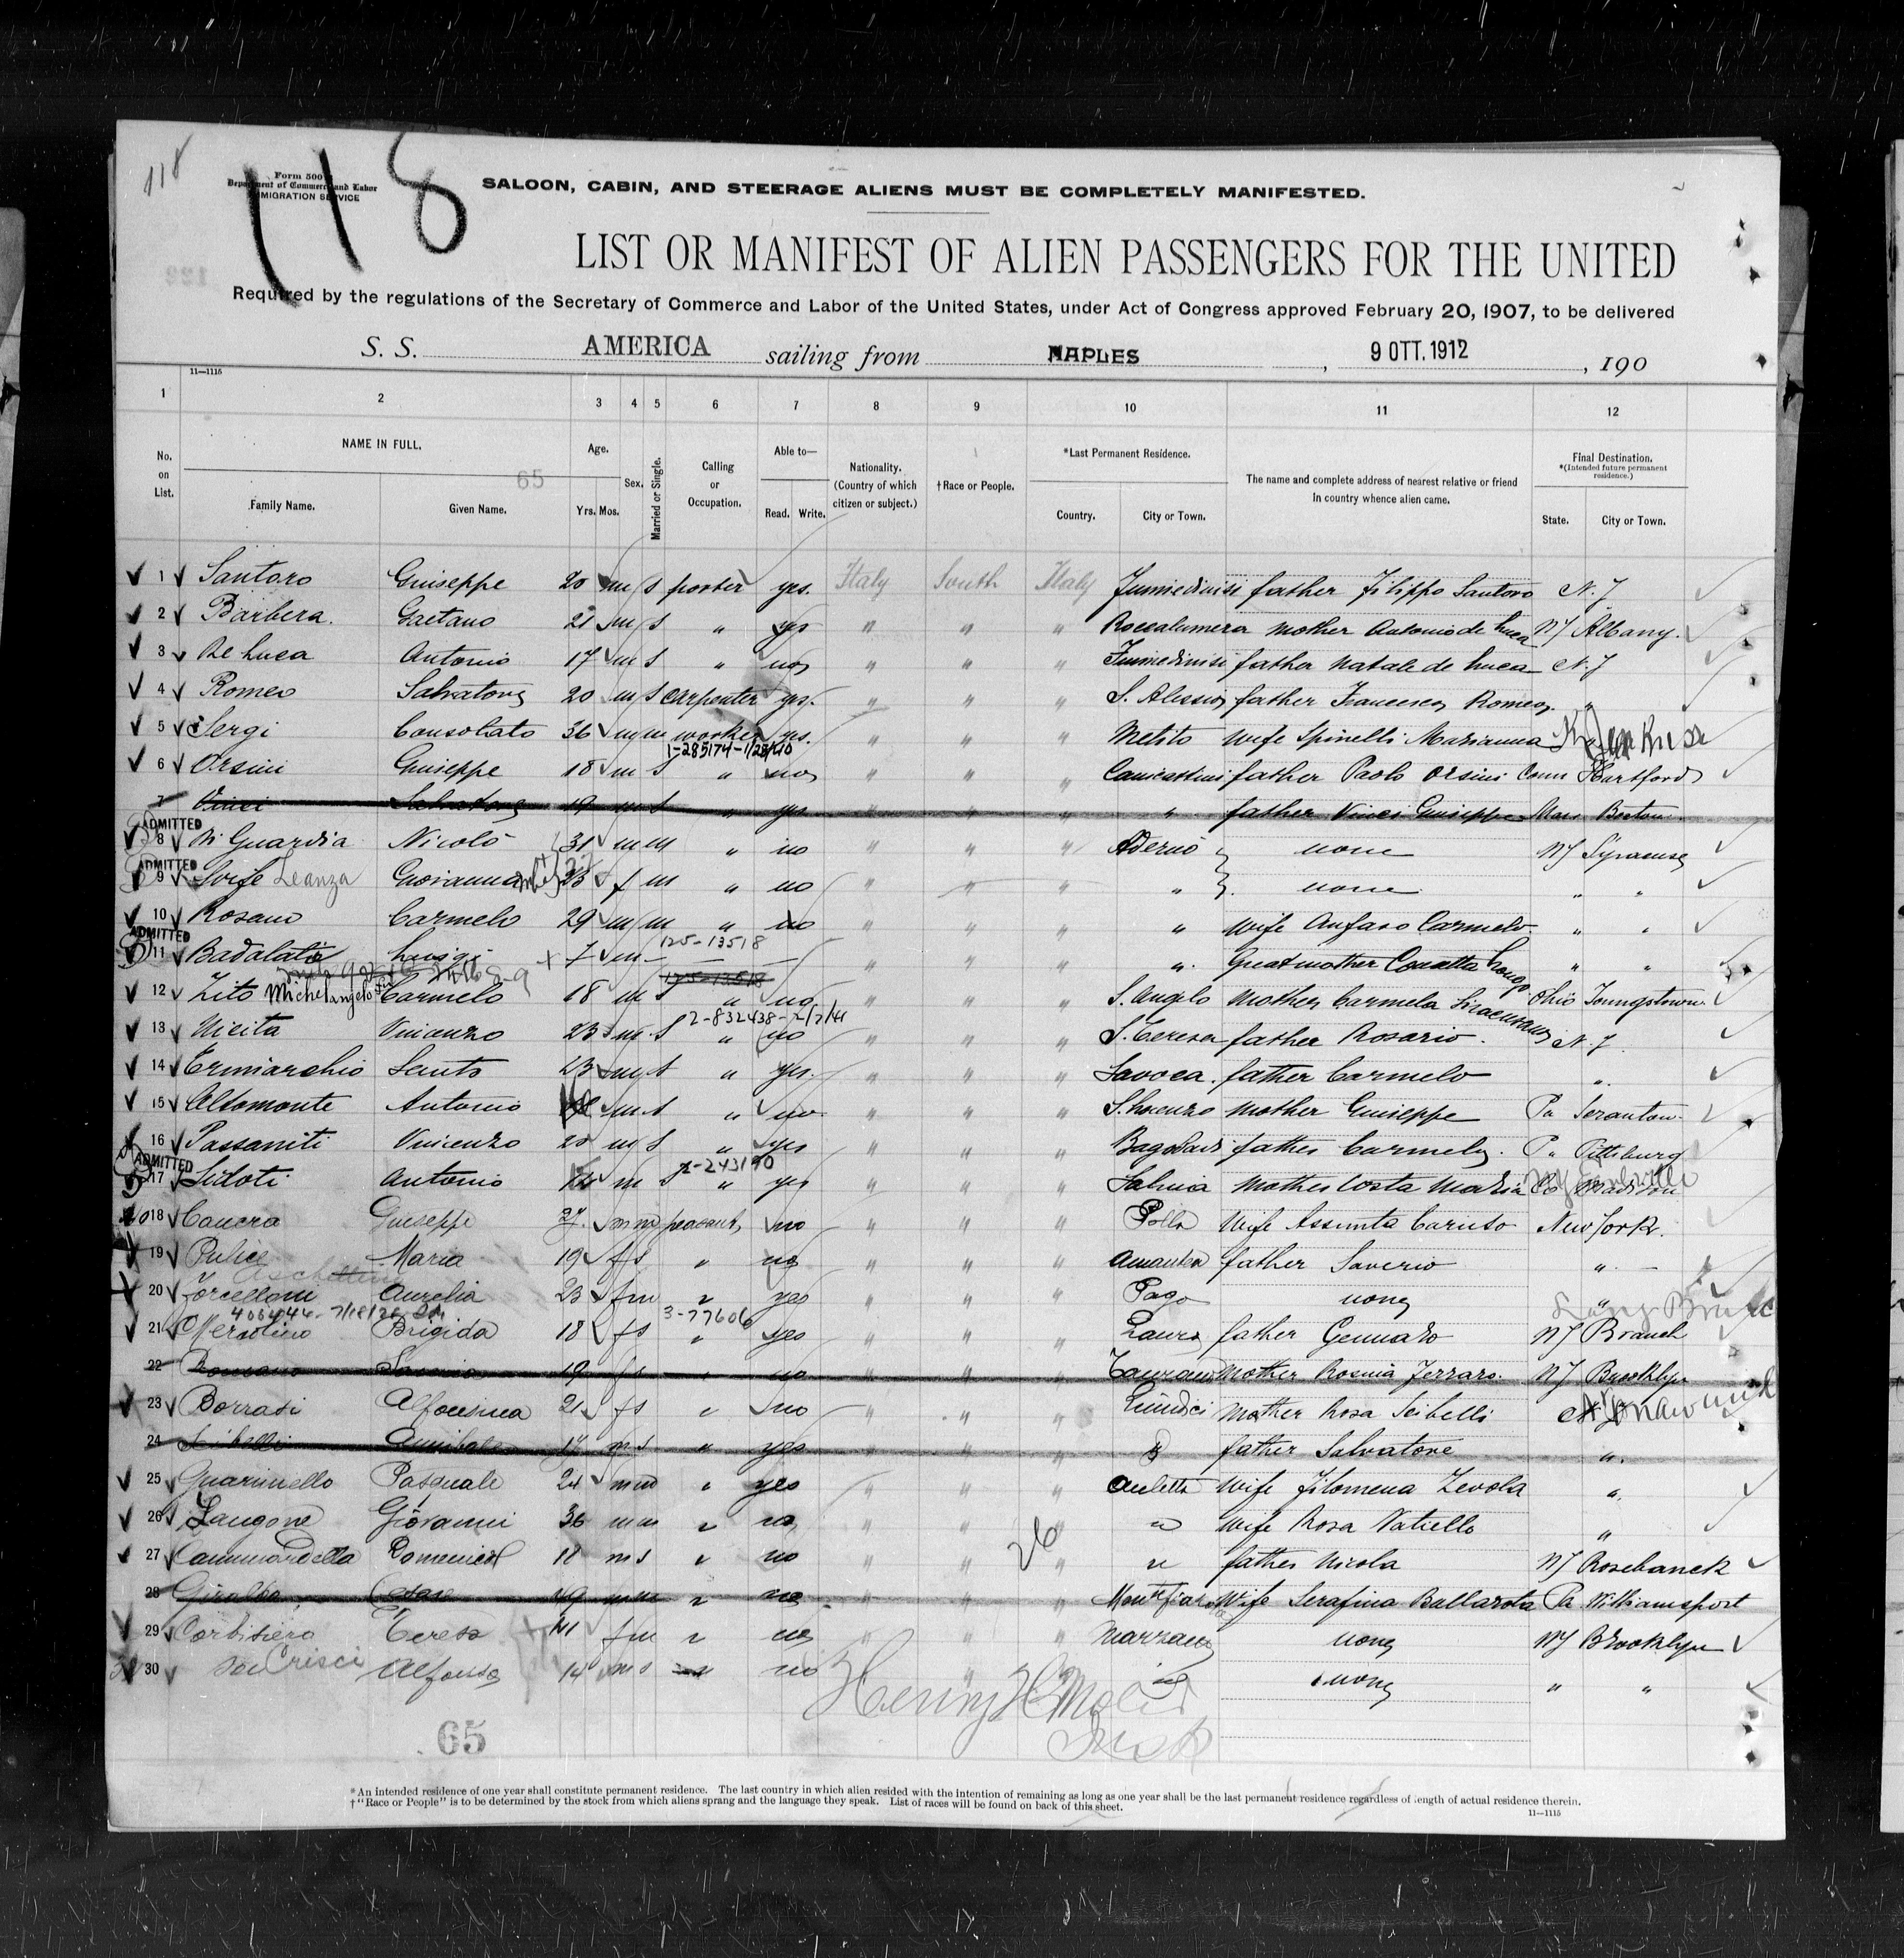 118
118
Form 500
Department of Commerce and Labor
IMMIGRATION SERVICE
SALOON, CABIN, AND STEERAGE ALIENS MUST BE COMPLETELY MANIFESTED.
LIST OR MANIFEST OF ALIEN PASSENGERS FOR THE UNITED
Required by the regulations of the Secretary of Commerce and Labor of the United States, under Act of Congress approved February 20, 1907, to be delivered
S. S. AMERICA sailing from NAPLES, 9 OTT. 1912, 190
11—1115
1 2 3 4 5 6 7 8 9 10 11 12
No. on List.
NAME IN FULL.
65
Family Name. Given Name.
Age.
Yrs. Mos.
Sex.
Married or Single.
Calling or Occupation.
Able to—
Read. Write.
Nationality. (Country of which citizen or subject.)
†Race or People.
*Last Permanent Residence.
Country. City or Town.
The name and complete address of nearest relative or friend in country whence alien came.
Final Destination.
*(Intended future permanent residence.)
State. City or Town.
1 Santoro Giuseppe 20 m s porter yes. Italy South Italy Fiumedinisi father Filippo Santoro N.J
2 Barbera. Gaetano 21 m s " yes " " " Roccalumera mother Antonio de Luca NY Albany.
3 De Luca Antonio 17 m s " no " " " Fiumedinisi father Natale de Luca N.J
4 Romeo Salvatore 20 m s carpenter yes. " " " S. Alessio father Francesco Romeo "
5 Sergi Consolato 36 m m worker yes. " " " Melito wife Spinelli Marianna
1-285174-1/29/40
6 Orsini Giuseppe 18 m s " no " " " Canicattini father Paolo Orsini Conn Hartford
7 Vinci Salvatore 19 m s " yes " " " " father Vinci Giuseppe Mass Boston
ADMITTED
8 Di Guardia Nicolò 31 m m " no " " " Adernò none NY Syracuse
ADMITTED
9 Wife Leanza Giovanna f m " no " " " " none " "
10 Rosano Carmelo 29 m m " no " " " " wife Carmelo " "
ADMITTED
125-13518
11 Badalato Luigi 7 m — — — " " " " Greatmother Concetta Longo " "
125-13518
12 Zito Michelangelo Carmelo 18 m s " no " " " S. Angelo Mother Carmela Siracusano Ohio Youngstown
2-832438-2/7/41
13 Nicita Vincenzo 23 m s " no " " " S. Teresa father Rosario. N.J.
14 Crimiarchio Santo 23 m s " yes. " " " Savoca. father Carmelo "
15 Altomonte Antonio m s " no " " " S. Lorenzo mother Giuseppe Pa Scranton
16 Passaniti Vincenzo 20 m s " yes " " " father Carmelo. Pa Pittsburg
ADMITTED
2-243190
17 Sidoti Antonio 14 m s " yes " " " Salina Mother Costa Maria
18 Giuseppe 27 m m peasant, no " " " Polla wife Assunta Caruso New York.
19 Pulice Maria 19 f s " no " " " Amantea father Saverio "
20 Forcelloni Aurelia 23 f m " yes " " " Pago none "
3-77606
21 Brigida 18 f s " yes " " " Lauro father Gennaro NJ Branch
22 19 f s " no " " " Mother Rosina Ferraro. NY Brooklyn
23 Borrasi Alfonsina 21 f s " no " " " Mother Rosa Scibelli
24 Scibelli Annibale 17 m s " yes " " " " father Salvatore "
25 Guarinello Pasquale 24 m m " yes " " " Auletta wife Filomena Zevola "
26 Langone Giovanni 36 m m " no " " " " wife Rosa Natiello "
26
27 Cammardella Domenico 18 m s " no " " " " father Nicola NY Rosebanck
28 Giraldo Cesare 49 m m " no " " " wife Serafina Ballarota Pa Williamsport
29 Corbisiero Teresa 41 f m " no " " " Marzano none NY Brooklyn
30 son Crisci Alfonso 14 m s " no " " none " "
Henry
65
*An intended residence of one year shall constitute permanent residence. The last country in which alien resided with the intention of remaining as long as one year shall be the last permanent residence regardless of length of actual residence therein.
†"Race or People" is to be determined by the stock from which aliens sprang and the language they speak. List of races will be found on back of this sheet.
11—1115